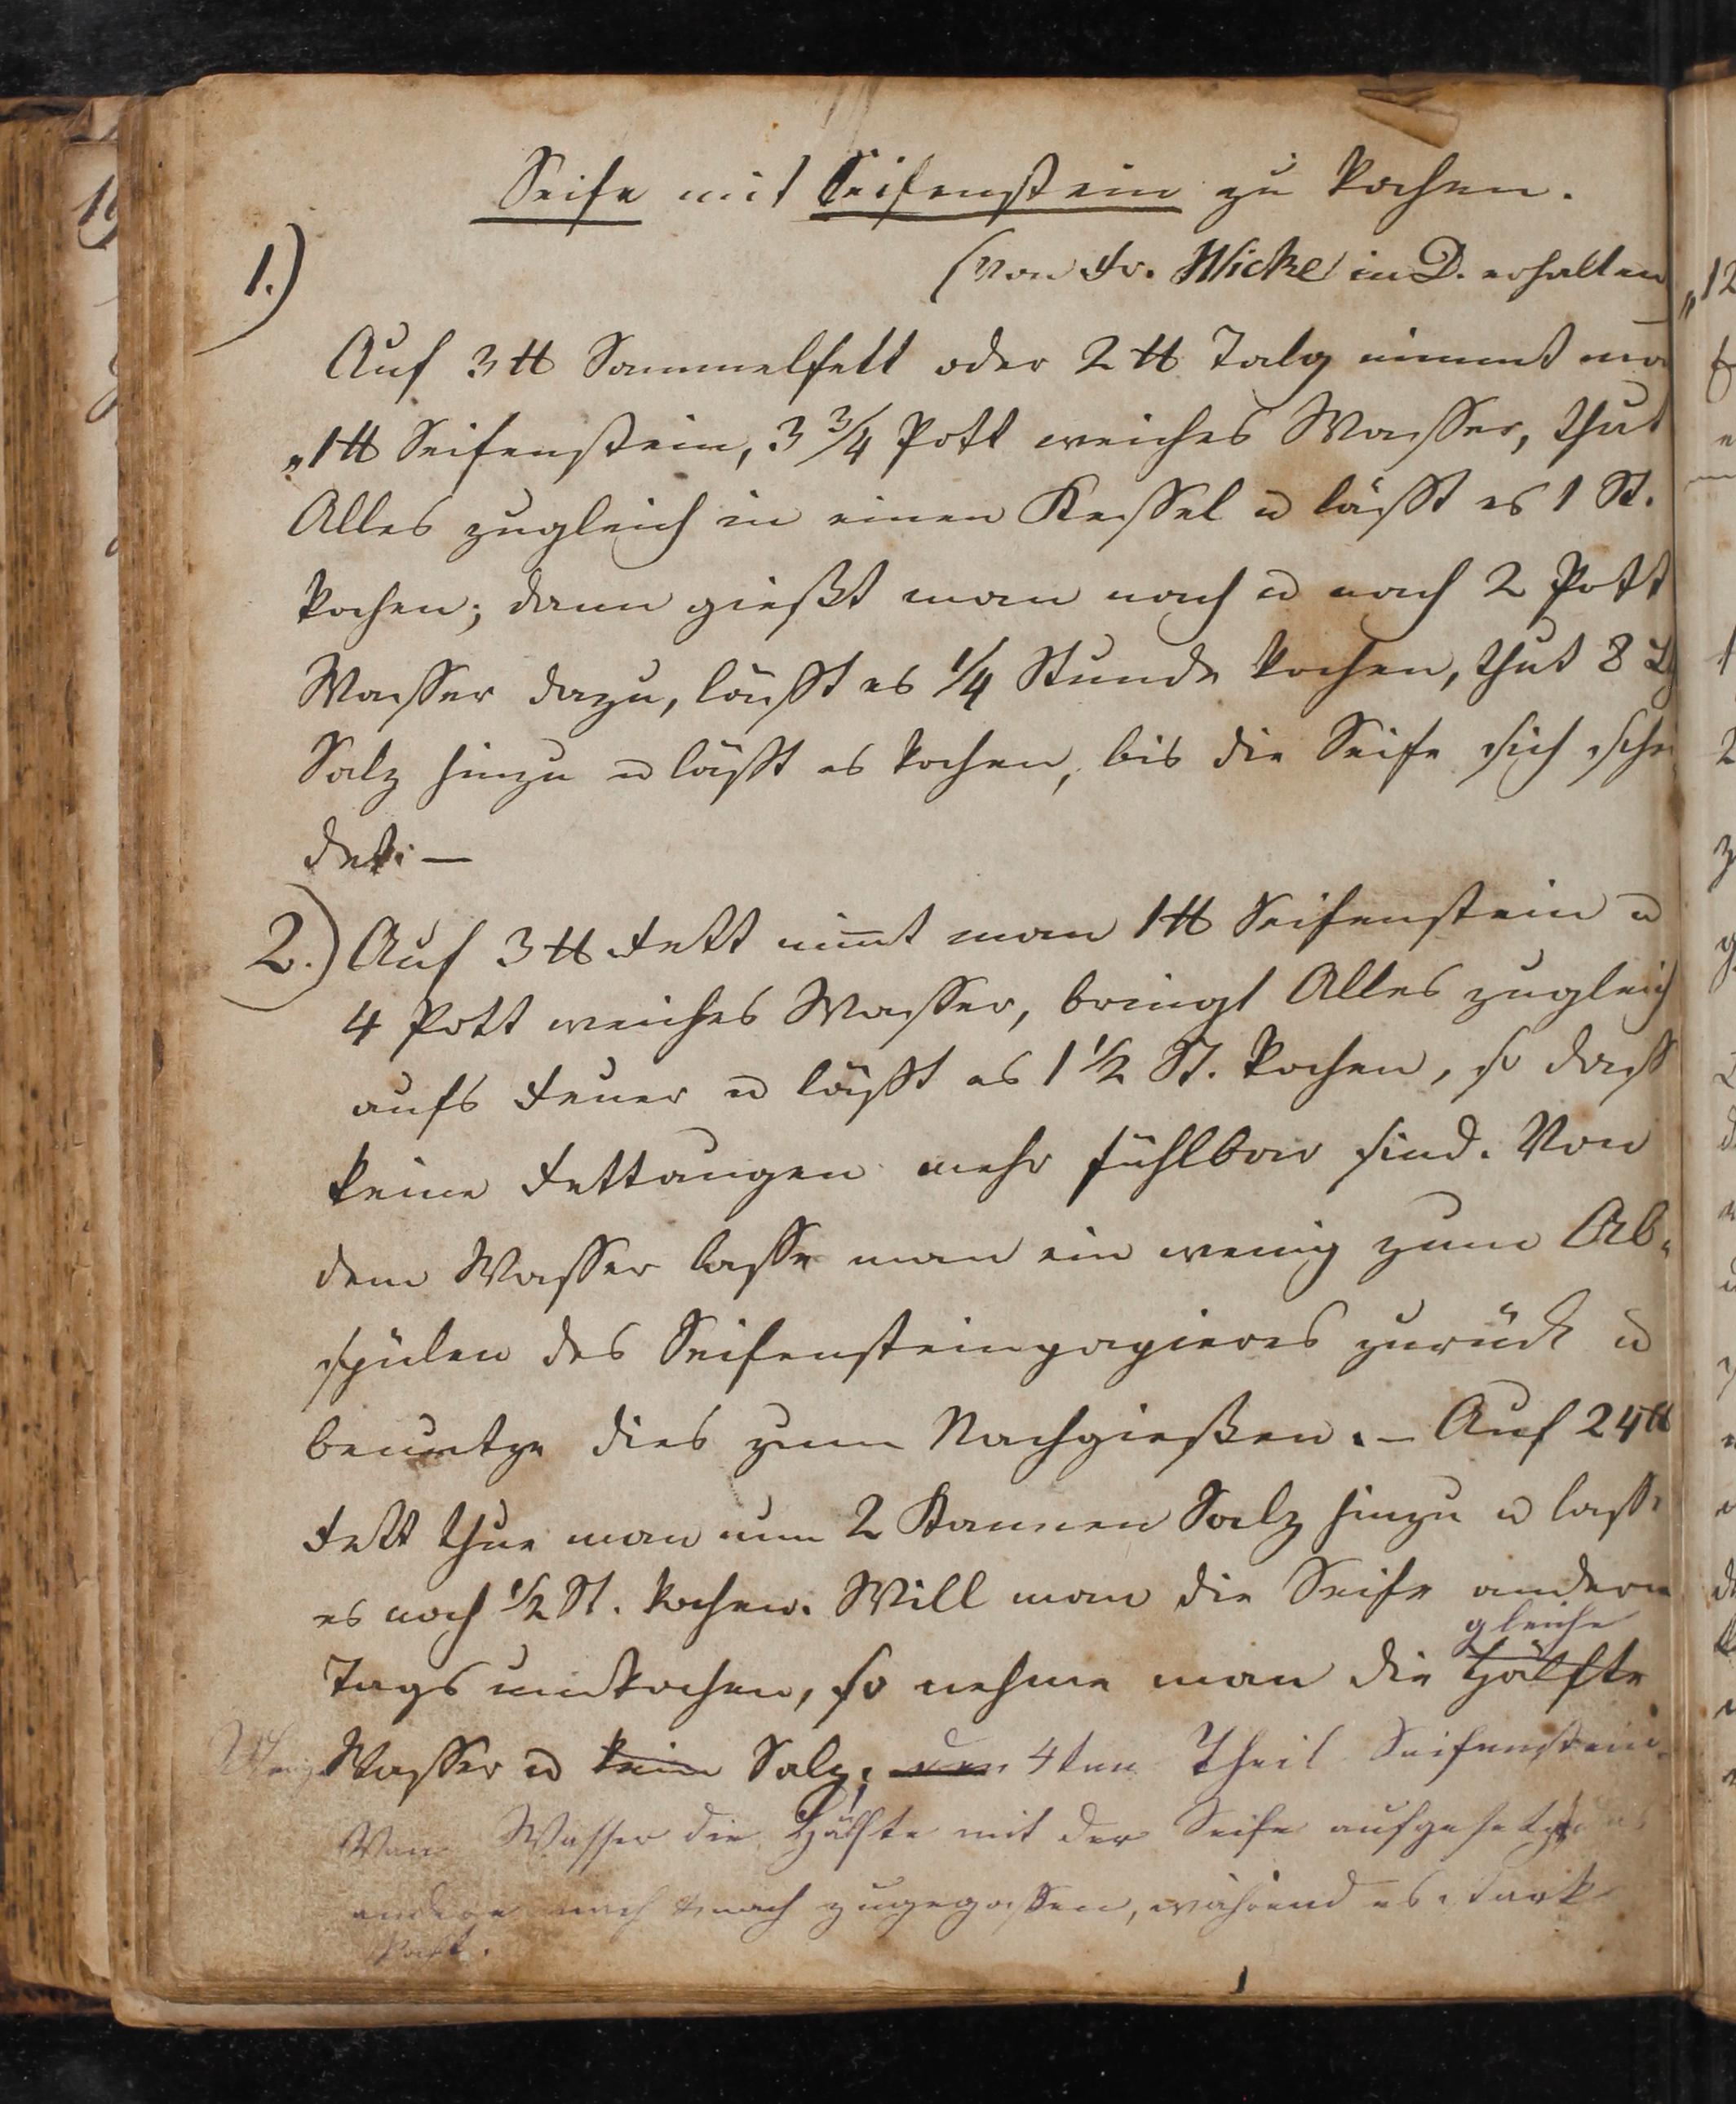 Seife mit Seifenstein zu kochen.
1.)
(von Fr. Wicke in D. erhalten
Auf 3 ℔ Sammelfett oder 2 ℔ Talg nimmt ma
1 ℔ Seifenstein, 3 3/4 Pott weiches Wasser, thut
Alles zugleich in einen Kessel u läßt es 1 St.
kochen; dann gießt man nach u nach 2 Pott
Wasser dazu, läßt es 1/4 Stunde kochen, thut 8
Salz hinzu u läßt es kochen, bis die Seife sich schei
det. —
2.) Auf 3 ℔ Fett nim̄t man 1 ℔ Seifenstein u
4 Pott weiches Wasser, bringt Alles zugleich
aufs Feuer u läßt es 1 1/2 St. kochen, so daß
keine Fettaugen mehr fühlbar sind. Von
dem Wasser lasse man ein wenig zum Ab-
spülen des Seifensteinpapieres zurück u
benutze dies zum Nachgießen. – Auf 24 ℔
Fett thue man nun 2 Kannen Salz hinzu u lasse
es noch 1/2 St. kochen. Will man die Seife andern
gleiche
Tags umkochen, so nehme man die Hälfte
Wasser u kein Salz, den 4ten Theil Seifenstein.
Von Wasser die Hälfte mit der Seife aufgesetzt das
andere nach u nach zugegossen, während es stark
kocht.